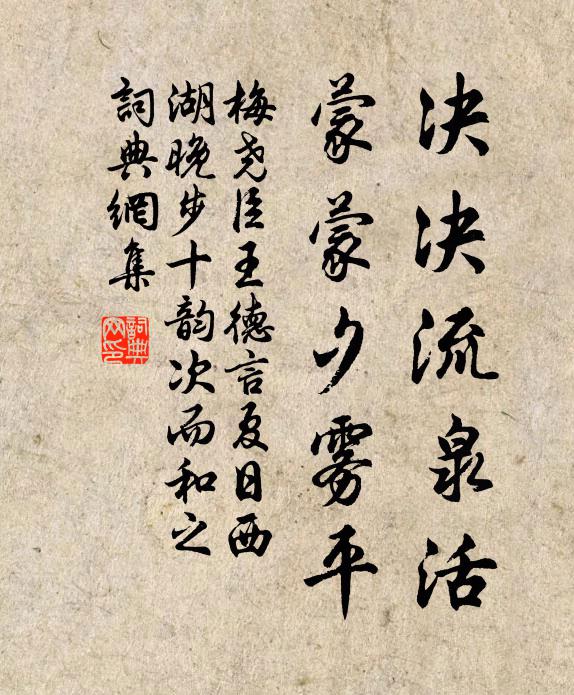 决决流泉活
蒙蒙夕雾平
梅尧臣王德言夏日西
湖晚步十韵次而和之
詞典網集
詞典
网印